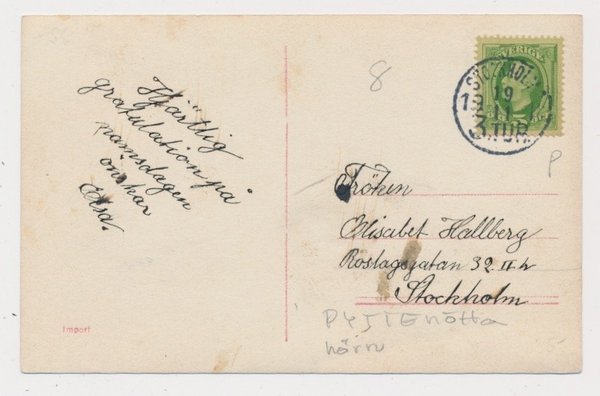 Hjärtlig
gratulation på
namnsdagen
önskar
Elsa.
Import
8
SVERIGE
STOCKHOLM
19
3.TUR.
P
Fröken
Elisabet Hallberg
Roslagsgatan 32 II h
Stockholm
hörn